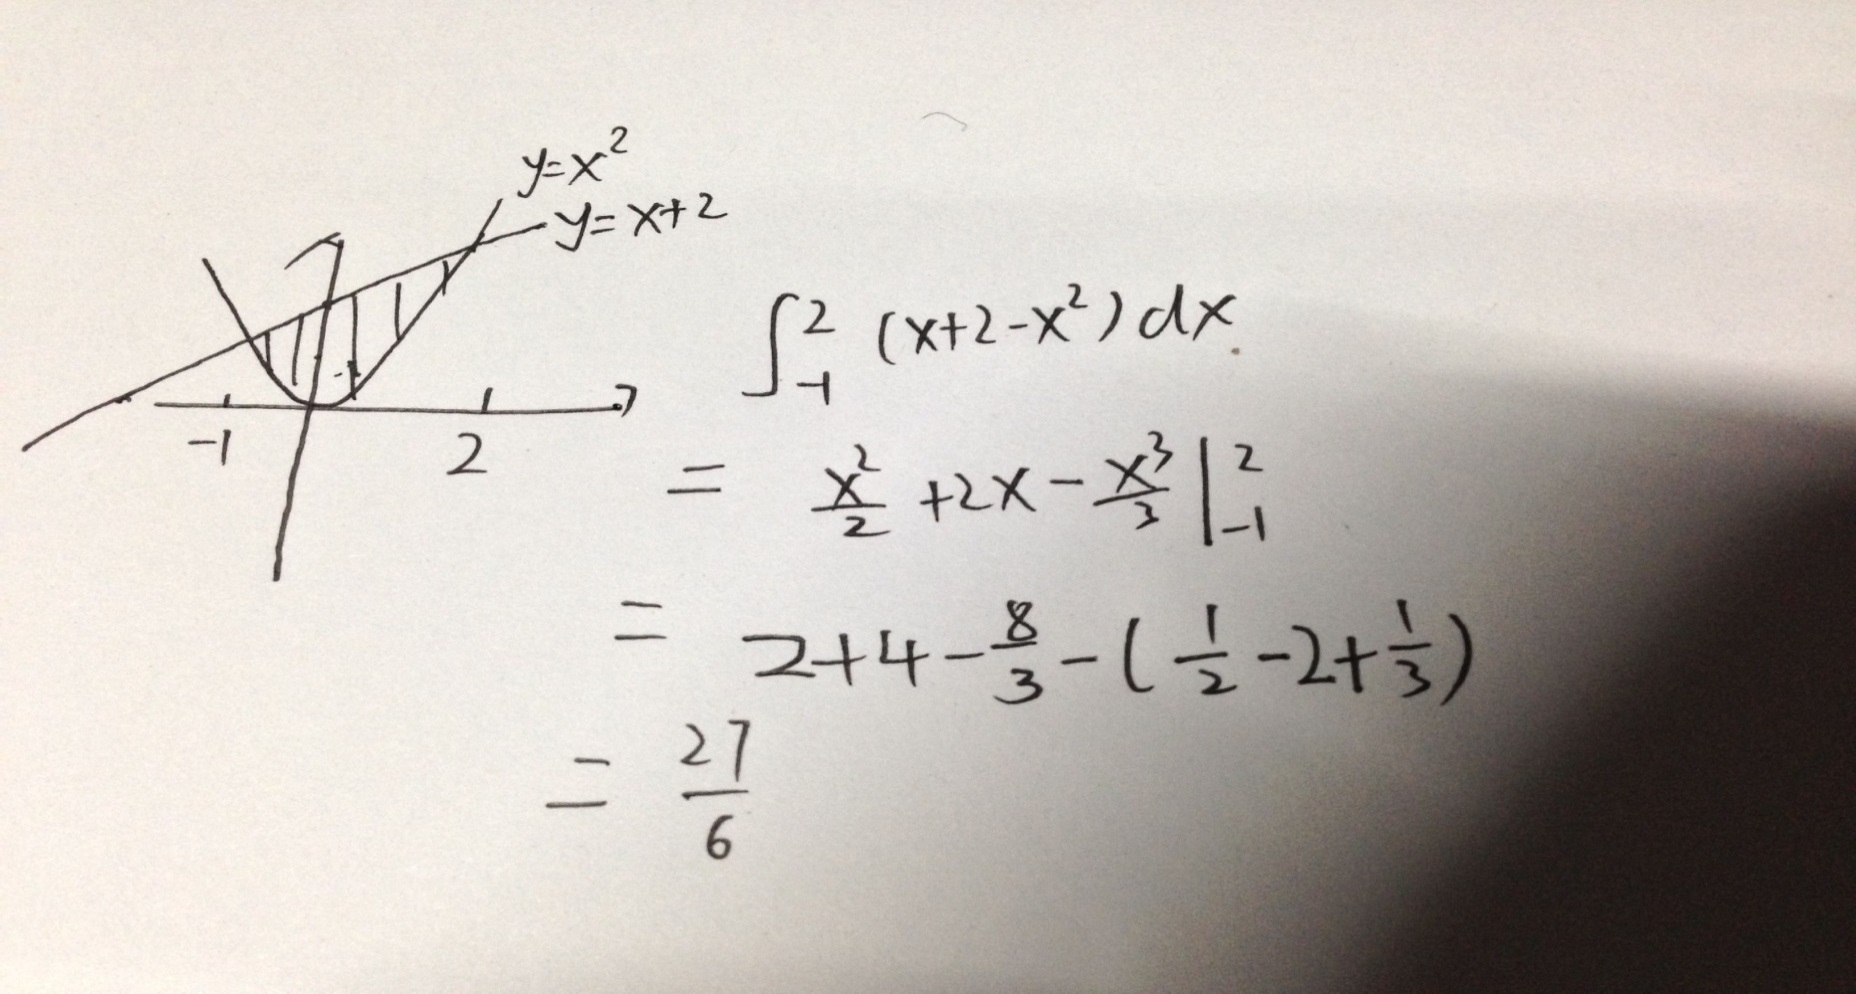 y=x²
y=x+2
-1 2
∫₋₁² (x+2-x²)dx
= x²/2 +2x - x³/3 |₋₁²
= 2+4-8/3-(1/2-2+1/3)
= 27/6